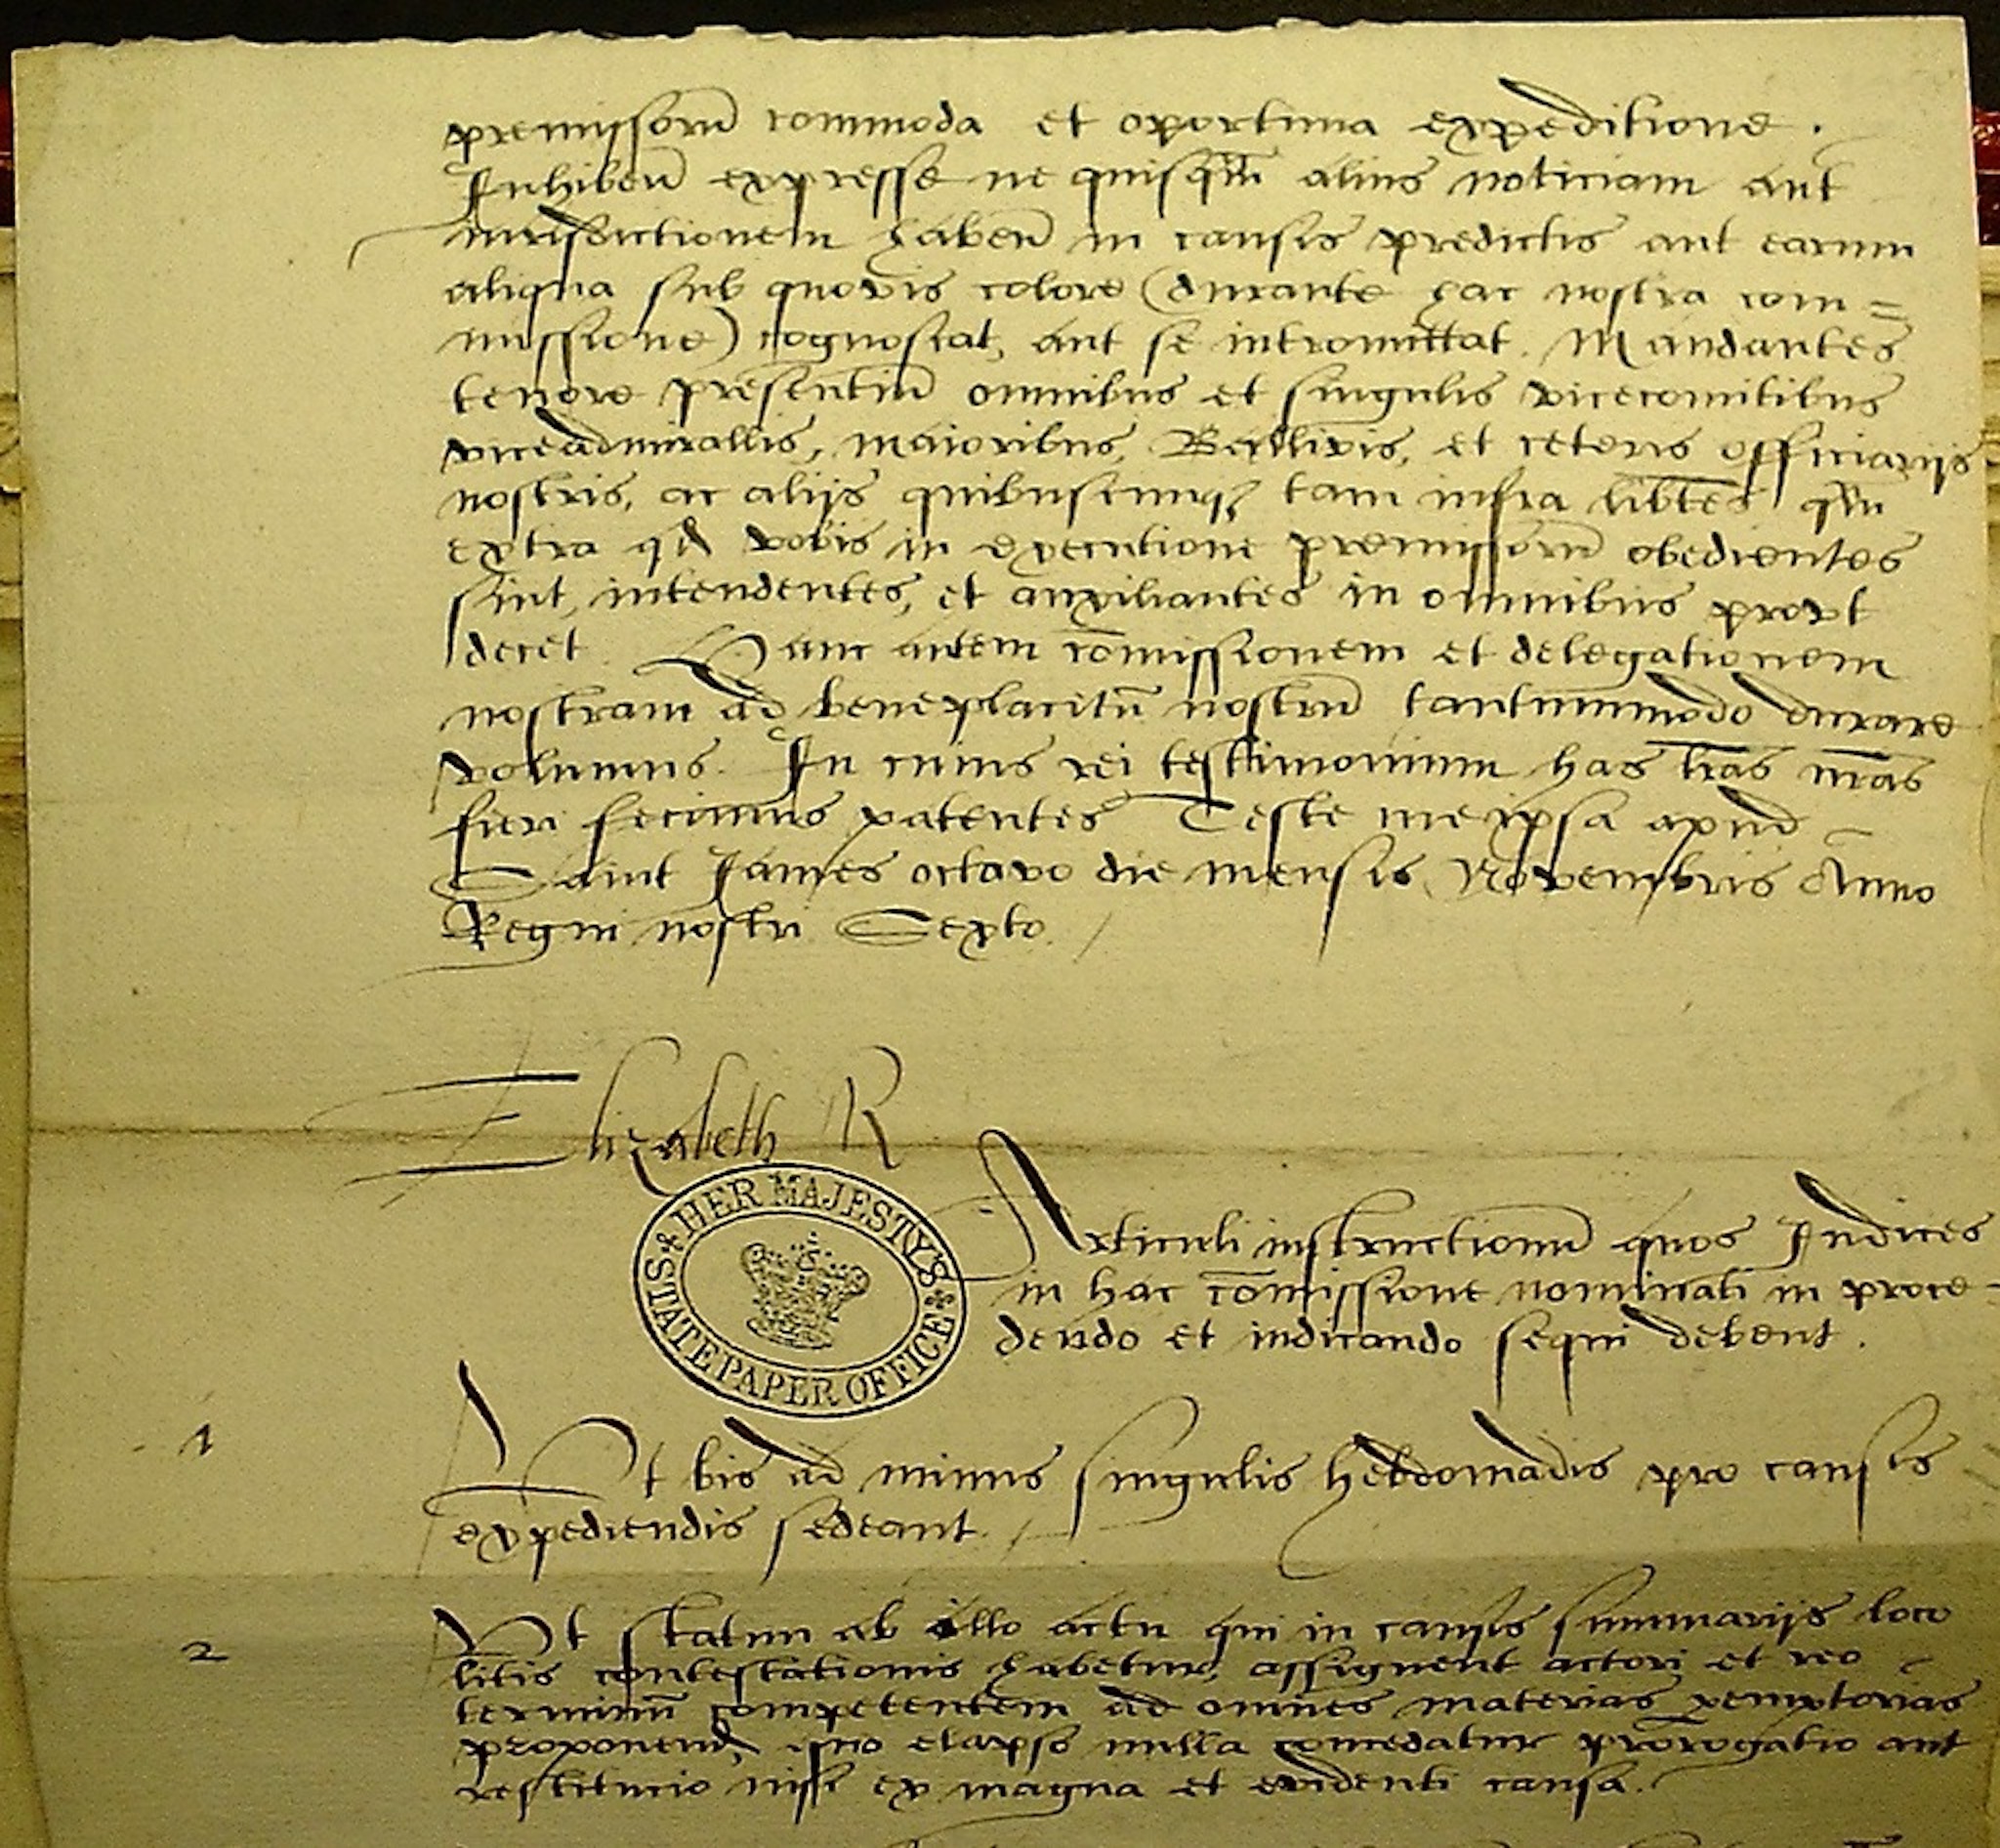 premissorũ commoda et oportuna expeditione.
Inhibeñ expresse ne quisqm̃ alius noticiam aut
iurisdictionem habeñ in causis predictis aut earum
aliqua sub quovis colore (durante hac nostra com=
missione) cognoscat, aut se intromittat. Mandantes
tenore presentiũ omnibus et singulis vicecomitibus
viceadmirallis, maioribus, Ballivis, et ceteris officiarijs
nostris, ac alijs quibuscunqȝ tam infra lib̃tes qm̃
extra qd vobis in executione premissorũ obedientes
sint, intendentes, et auxiliantes in omnibus provt
decet. Hanc autem cõmissionem et delegationem
nostram ad beneplacitũ nostrũ tantummodo durare
volumus. In cuius rei testimonium has lr̃as nr̃as
fieri fecimus patentes Teste me ipsa apud
Saint James octavo die mensis Novembris Anno
Regni nostri Sexto.
Elizabeth R
HER MAJESTY'S STATE PAPER OFFICE
Articuli instructionũ quos Iudices
in hac cõmissione nominati in proce-
dendo et iudicando sequi debent.
1 Vt bis ad minus singulis hebdomadis pro causis
expediendis sedeant.
2 Vt statim ab illo actu qui in causis summarijs loco
litis contestationis habetur, assignent actori et reo
terminũ competentem ad omnes materias pemptorias
proponend, quo elapso nulla concedatur prorogatio aut
restitucio nisi ex magna et evidenti causa.